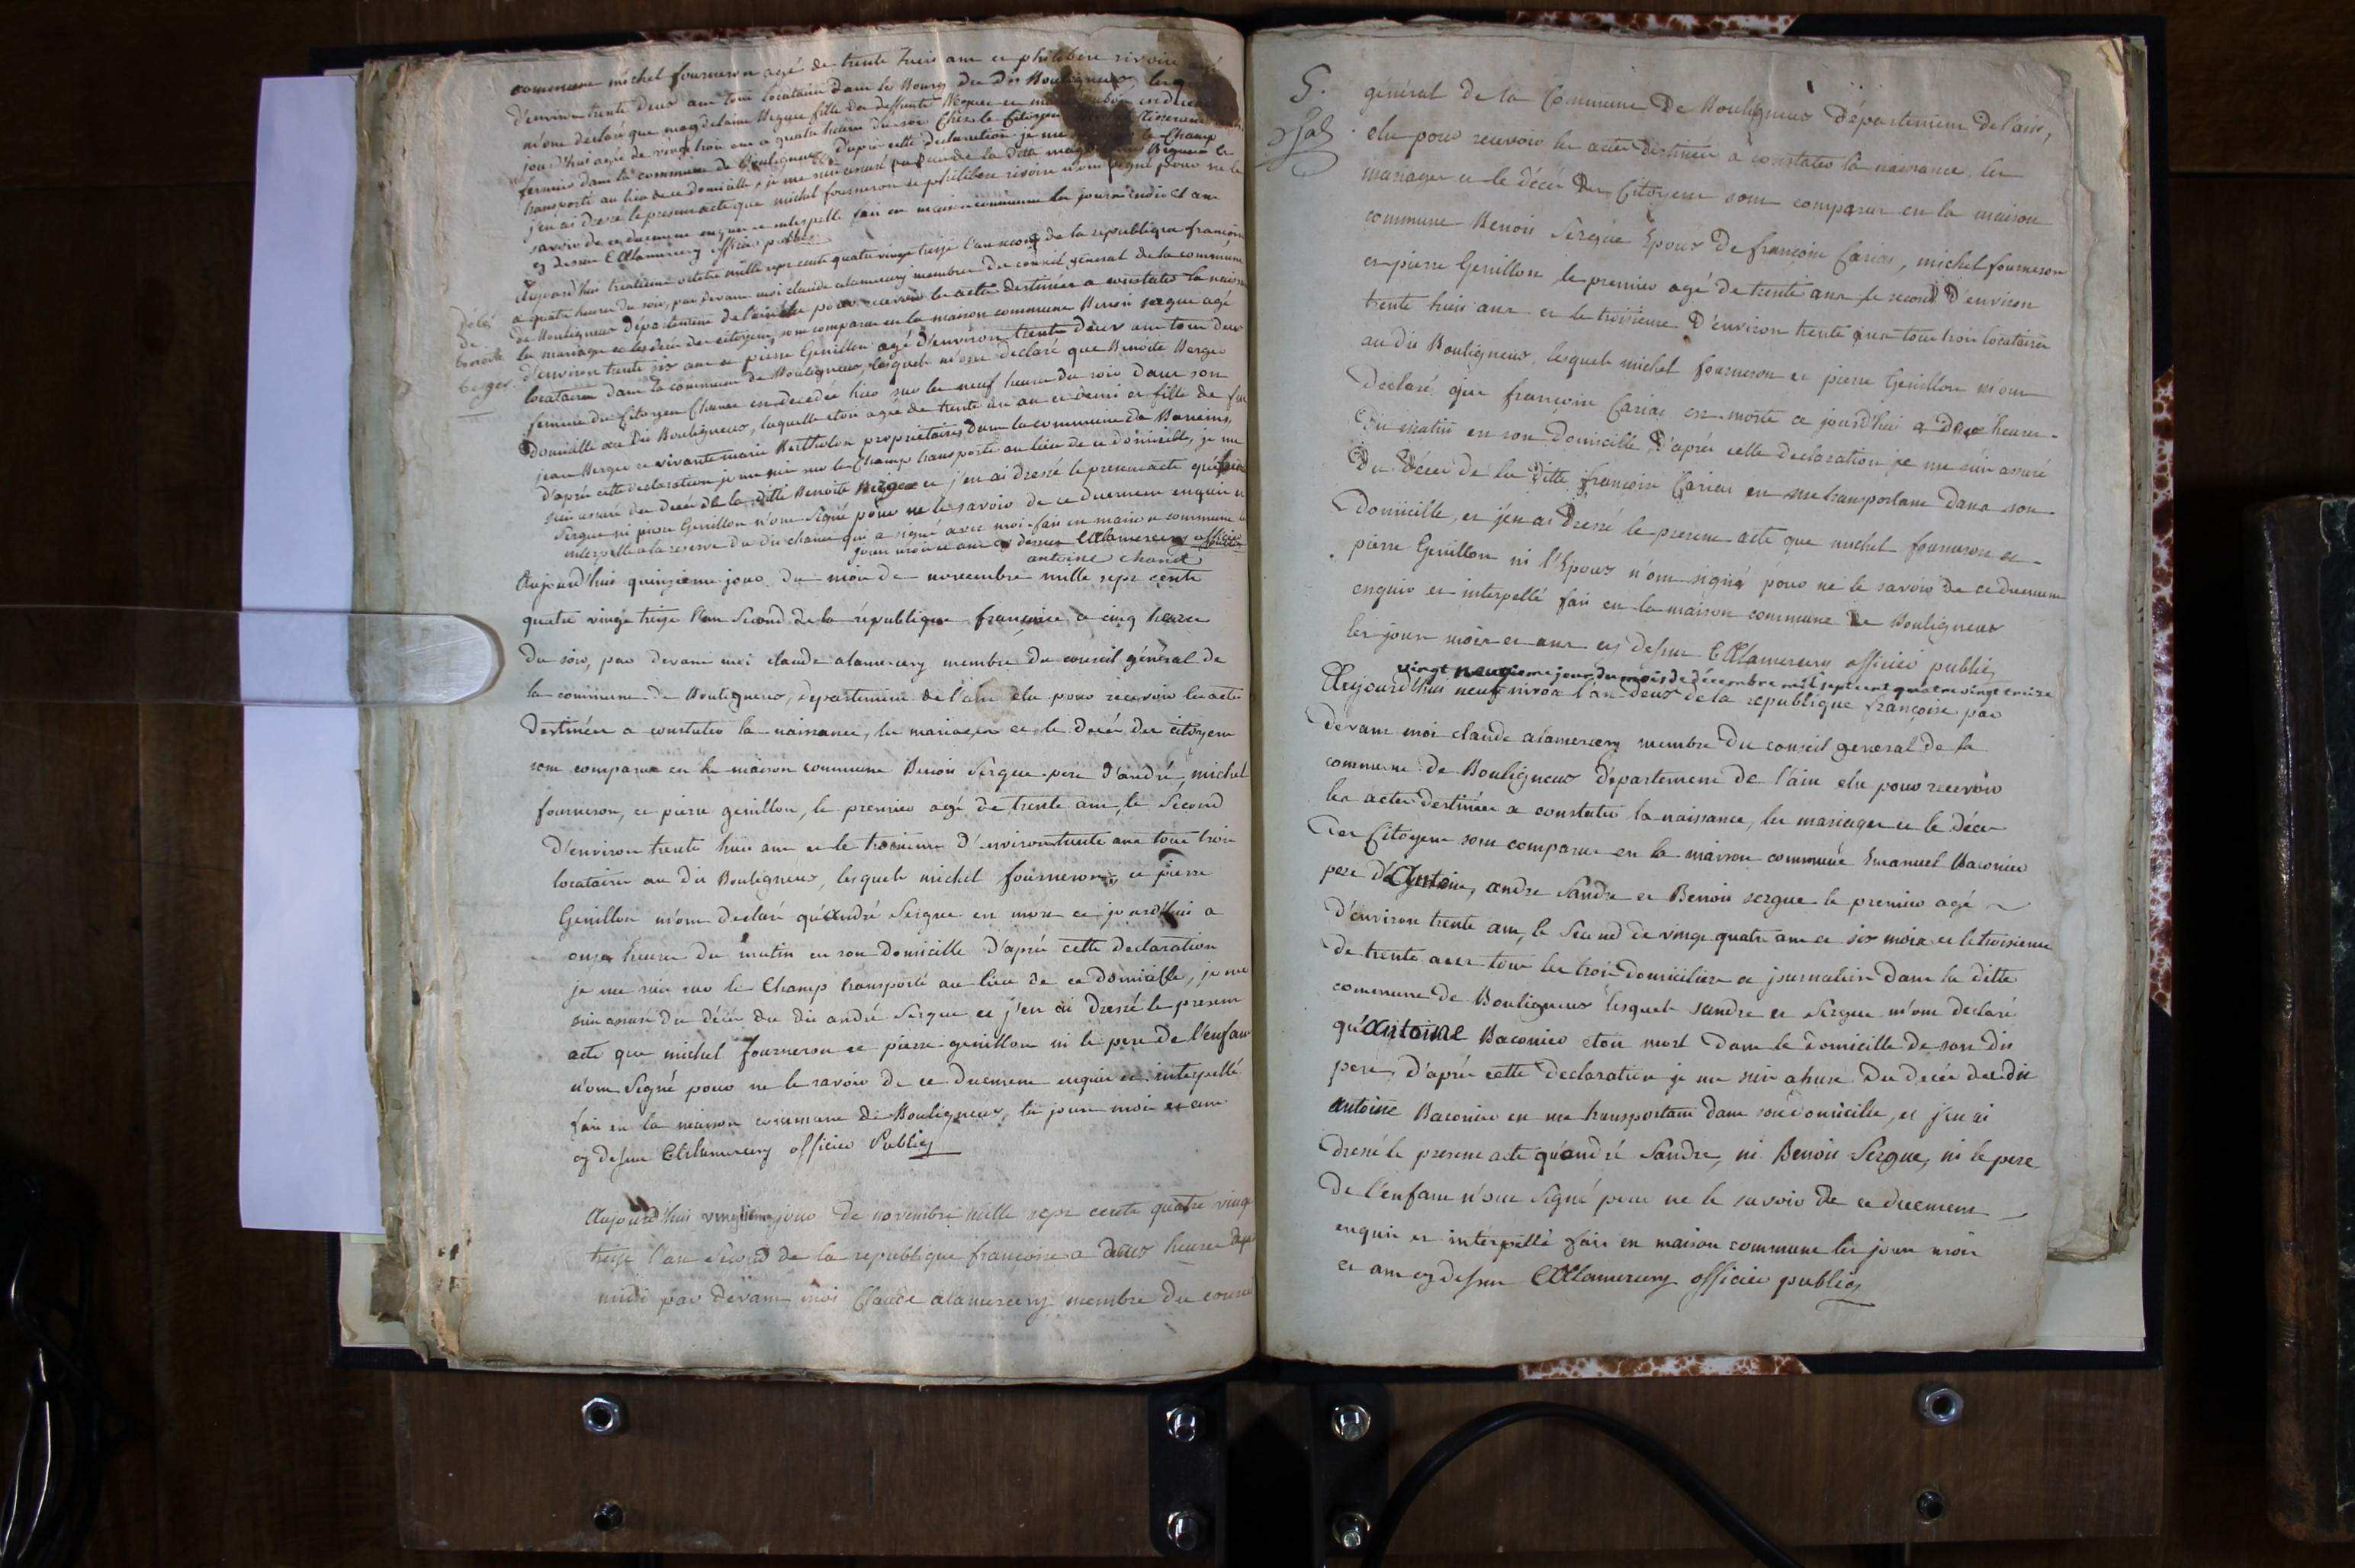 commune michel fourneron agé de trente huis ans et philibere rivoire agé
d'environ trente deux ans tous locataire dans le Bourg du dit Bouligneux
m'ont declaré que magdelaine Bergue fille de deffunte
jourd'hui agée de vingt trois ans a quatre heures du soir Chez le Citoyen
fermier dans la commune de Bouligneux d'apres cette declaration je me le Champ
transporté au lieu de ce domicille, je me suis assuré du deces de la ditte
j'en ai dressé le present acte que michel fourneron et philibere rivoire n'ont signé pour ne le
savoir de ce duement enquis et interpellé fait en maison commune les jour mois et an
cy dessus CAlamercery officier public
Aujourd'hui trentieme octobre mille sept cents quatre vingt treize l'an second de la republique françoise
a quatre heures du soir, par devant moi claude alamercery membre du conseil general de la commune
Décès
de Bouligneux departement de l'ain elu pour recevoir les actes destinés a constater la naissance
de
les mariages et les deces des citoyens, sont comparus en la maison commune Benoit sergue agé
benoite
d'environ trente six ans et pierre Genillon agé d'environ trente deux ans tous deux
berger
locataires dans la commune de Bouligneux, lesquels m'ont declaré que Benoite Berger
femme du Citoyen Chanet est decedée hier sur les neuf heures du soir dans son
Domicille au dit Bouligneux, laquelle etoit agée de trente un an et demi et fille de feu
jean Berger et vivante marie Berthelon proprietaires dans la commune de Baneins,
d'apres cette declaration je me suis sur le champ transporté au lieu de ce domicille, je me
suis assuré du deces de la ditte Benoite Berger et j'en ai dressé le present acte que benoit
Sergue ni pierre Genillon n'ont signé pour ne le savoir de ce duement enquis et
interpellé a la reserve du dit chanet qui a signé avec moi fait en maison commune les
jour mois et an cy dessus CAlamercery officier
antoine chanet
Aujourd'hui quinzieme jour du mois de novembre mille sept cents
quatre vingt treize l'an Second de la république françoise a cinq heures
du soir, par devant moi claude alamercery membre du conseil général de
la commune de Bouligneux, departement de l'ain elu pour recevoir les actes
destinés a constater la naissance, les mariages et le décès des citoyens
sont comparus en la maison commune Benoit Sergue pere d'andré, michel
fourneron, et pierre genillon, le premier agé de trente ans, le Second
d'environ trente huis ans et le troisieme d'environ trente ans tous trois
locataires au dit Bouligneux, lesquels michel fourneron, et pierre
Genillon m'ont declaré qu'André Sergue est mort ce jourd'hui a
onze heures du matin en son domicille d'après cette declaration
je me suis sur le Champ transporté au lieu de ce domicille, je me
suis assuré du décès du dit andré Sergue et j'en ai dressé le present
acte que michel fourneron et pierre genillon ni le pere de l'enfant
n'ont Signé pour ne le savoir de ce duement enquis et interpellé
fait en la maison commune de Bouligneux, les jours mois et ans
cy dessus CAlamercery officier Public
Aujourd'hui vingtieme jour de novembre mille sept cents quatre vingt
treize l'an Second de la republique françoise a deux heures après
midi par devant moi Claude alamercery membre du conseil
5.
général de la Commune De Bouligneux Département de l'ain,
elu pour recevoir les actes destinés a constater la naissance, les
mariages et le décès des Citoyens sont comparus en la maison
commune Benoit Sergue Epoux De françoise Carias, michel fourneron
et pierre Genillon, le premier agé de trente ans le second D'environ
trente huis ans et le troisieme D'environ trente ans tous trois locataires
au dit Bouligneux, lesquels michel fourneron et pierre Genillon m'ont
Déclaré que françoise Carias est morte ce jourd'hui a deux heures
Du matin en son Domicille, D'après cette declaration je me suis assuré
Du Décès de la Ditte françoise Carias en me transportant dans son
Domicille, et j'en ai Dressé le present acte que michel fourneron et
pierre Genillon ni l'Epoux n'ont signé pour ne le savoir de ce duement
enquis et interpellé fait en la maison commune de Bouligneux
les jours mois et ans cy dessus CAlamercery officier public
vingt neuvieme jour du mois de décembre mil sept cent quatre vingt treize
Aujourd'hui neuf nivôse l'an deux de la republique françoise par
devant moi claude alamercery membre du conseil general de la
commune de Bouligneux département de l'ain elu pour recevoir
les actes destinés a constater la naissance, les mariages et le décès
des Citoyens sont comparus en la maison commune Emanuel Baconier
pere d'Antoine, andre Sandre et Benoit sergue le premier agé
d'environ trente ans, le Second de vingt quatre ans et six mois et le troisieme
de trente ans tous les trois domiciliés et journaliers dans la ditte
commune de Bouligneux lesquels sandre et Sergue m'ont declaré
qu'Antoine Baconier etoit mort dans le domicille de son dit
pere, d'après cette declaration je me suis assuré du décès du dit
antoine Baconier en me transportant dans son domicille, et j'en ai
dressé le present acte qu'andré Sandre, ni Benoit Sergue, ni le pere
de l'enfant n'ont Signé pour ne le savoir de ce duement
enquis et interpellé fait en maison commune les jours mois
et ans cy dessus CAlamercery officier public